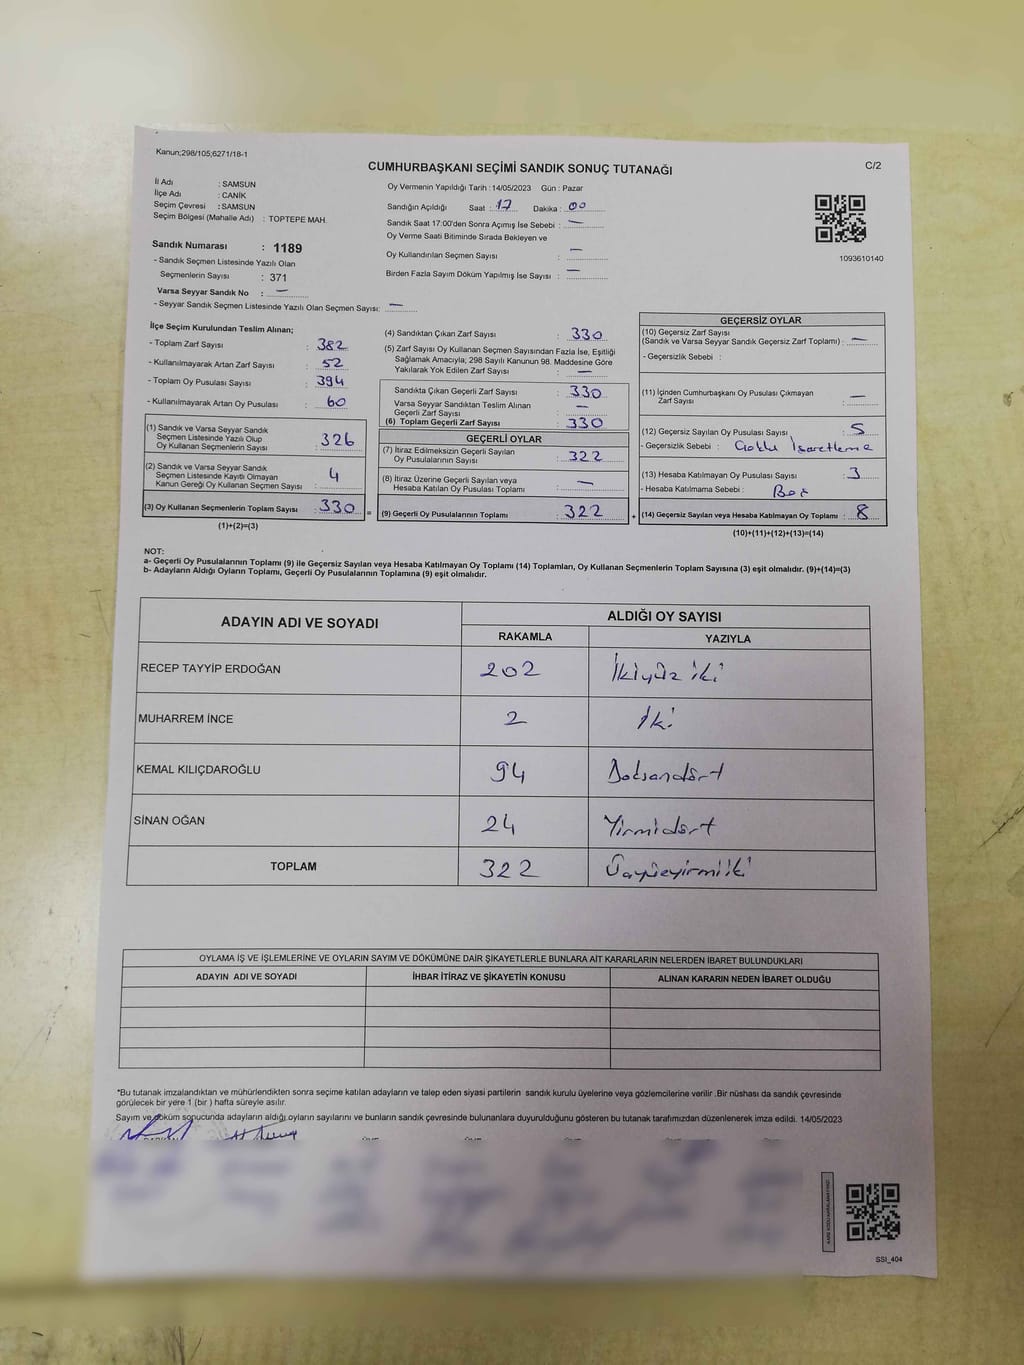 Kanun;298/105;6271/18-1
CUMHURBAŞKANI SEÇİMİ SANDIK SONUÇ TUTANAĞI
C/2
İl Adı : SAMSUN
İlçe Adı : CANİK
Seçim Çevresi : SAMSUN
Seçim Bölgesi (Mahalle Adı) : TOPTEPE MAH.
Sandık Numarası : 1189
- Sandık Seçmen Listesinde Yazılı Olan
Seçmenlerin Sayısı : 371
Varsa Seyyar Sandık No : —
- Seyyar Sandık Seçmen Listesinde Yazılı Olan Seçmen Sayısı: —
Oy Vermenin Yapıldığı Tarih : 14/05/2023 Gün : Pazar
Sandığın Açıldığı Saat : 17 Dakika : 00
Sandık Saat 17:00'den Sonra Açımış İse Sebebi : —
Oy Verme Saati Bitiminde Sırada Bekleyen ve
Oy Kullandırılan Seçmen Sayısı : —
Birden Fazla Sayım Döküm Yapılmış İse Sayısı : —
1093610140
İlçe Seçim Kurulundan Teslim Alınan;
- Toplam Zarf Sayısı : 382
- Kullanılmayarak Artan Zarf Sayısı : 52
- Toplam Oy Pusulası Sayısı : 394
- Kullanılmayarak Artan Oy Pusulası : 60
(1) Sandık ve Varsa Seyyar Sandık
Seçmen Listesinde Yazılı Olup
Oy Kullanan Seçmenlerin Sayısı : 326
(2) Sandık ve Varsa Seyyar Sandık
Seçmen Listesinde Kayıtlı Olmayan
Kanun Gereği Oy Kullanan Seçmen Sayısı : 4
(3) Oy Kullanan Seçmenlerin Toplam Sayısı : 330
(1)+(2)=(3)
(4) Sandıktan Çıkan Zarf Sayısı : 330
(5) Zarf Sayısı Oy Kullanan Seçmen Sayısından Fazla İse, Eşitliği
Sağlamak Amacıyla; 298 Sayılı Kanunun 98. Maddesine Göre
Yakılarak Yok Edilen Zarf Sayısı : —
Sandıkta Çıkan Geçerli Zarf Sayısı : 330
Varsa Seyyar Sandıktan Teslim Alınan
Geçerli Zarf Sayısı : —
(6) Toplam Geçerli Zarf Sayısı : 330
GEÇERLİ OYLAR
(7) İtiraz Edilmeksizin Geçerli Sayılan
Oy Pusulalarının Sayısı : 322
(8) İtiraz Üzerine Geçerli Sayılan veya
Hesaba Katılan Oy Pusulası Toplamı : —
= (9) Geçerli Oy Pusulalarının Toplamı : 322
GEÇERSİZ OYLAR
(10) Geçersiz Zarf Sayısı
(Sandık ve Varsa Seyyar Sandık Geçersiz Zarf Toplamı) : —
- Geçersizlik Sebebi :
(11) İçinden Cumhurbaşkanı Oy Pusulası Çıkmayan
Zarf Sayısı : —
(12) Geçersiz Sayılan Oy Pusulası Sayısı : 5
- Geçersizlik Sebebi : İşaretleme
(13) Hesaba Katılmayan Oy Pusulası Sayısı : 3
- Hesaba Katılmama Sebebi : Boş
+ (14) Geçersiz Sayılan veya Hesaba Katılmayan Oy Toplamı : 8
(10)+(11)+(12)+(13)=(14)
NOT:
a- Geçerli Oy Pusulalarının Toplamı (9) ile Geçersiz Sayılan veya Hesaba Katılmayan Oy Toplamı (14) Toplamları, Oy Kullanan Seçmenlerin Toplam Sayısına (3) eşit olmalıdır. (9)+(14)=(3)
b- Adayların Aldığı Oyların Toplamı, Geçerli Oy Pusulalarının Toplamına (9) eşit olmalıdır.
ADAYIN ADI VE SOYADI
ALDIĞI OY SAYISI
RAKAMLA YAZIYLA
RECEP TAYYİP ERDOĞAN 202 İkiyüz iki
MUHARREM İNCE 2 İki
KEMAL KILIÇDAROĞLU 94 Doksandört
SİNAN OĞAN 24 Yirmidört
TOPLAM 322 Üçyüzyirmiiki
OYLAMA İŞ VE İŞLEMLERİNE VE OYLARIN SAYIM VE DÖKÜMÜNE DAİR ŞİKAYETLERLE BUNLARA AİT KARARLARIN NELERDEN İBARET BULUNDUKLARI
ADAYIN ADI VE SOYADI İHBAR İTİRAZ VE ŞİKAYETİN KONUSU ALINAN KARARIN NEDEN İBARET OLDUĞU
*Bu tutanak imzalandıktan ve mühürlendikten sonra seçime katılan adayların ve talep eden siyasi partilerin sandık kurulu üyelerine veya gözlemcilerine verilir .Bir nüshası da sandık çevresinde
görülecek bir yere 1 (bir ) hafta süreyle asılır.
Sayım ve döküm sonucunda adayların aldığı oyların sayılarını ve bunların sandık çevresinde bulunanlara duyurulduğunu gösteren bu tutanak tarafımızdan düzenlenerek imza edildi. 14/05/2023
SSI_404